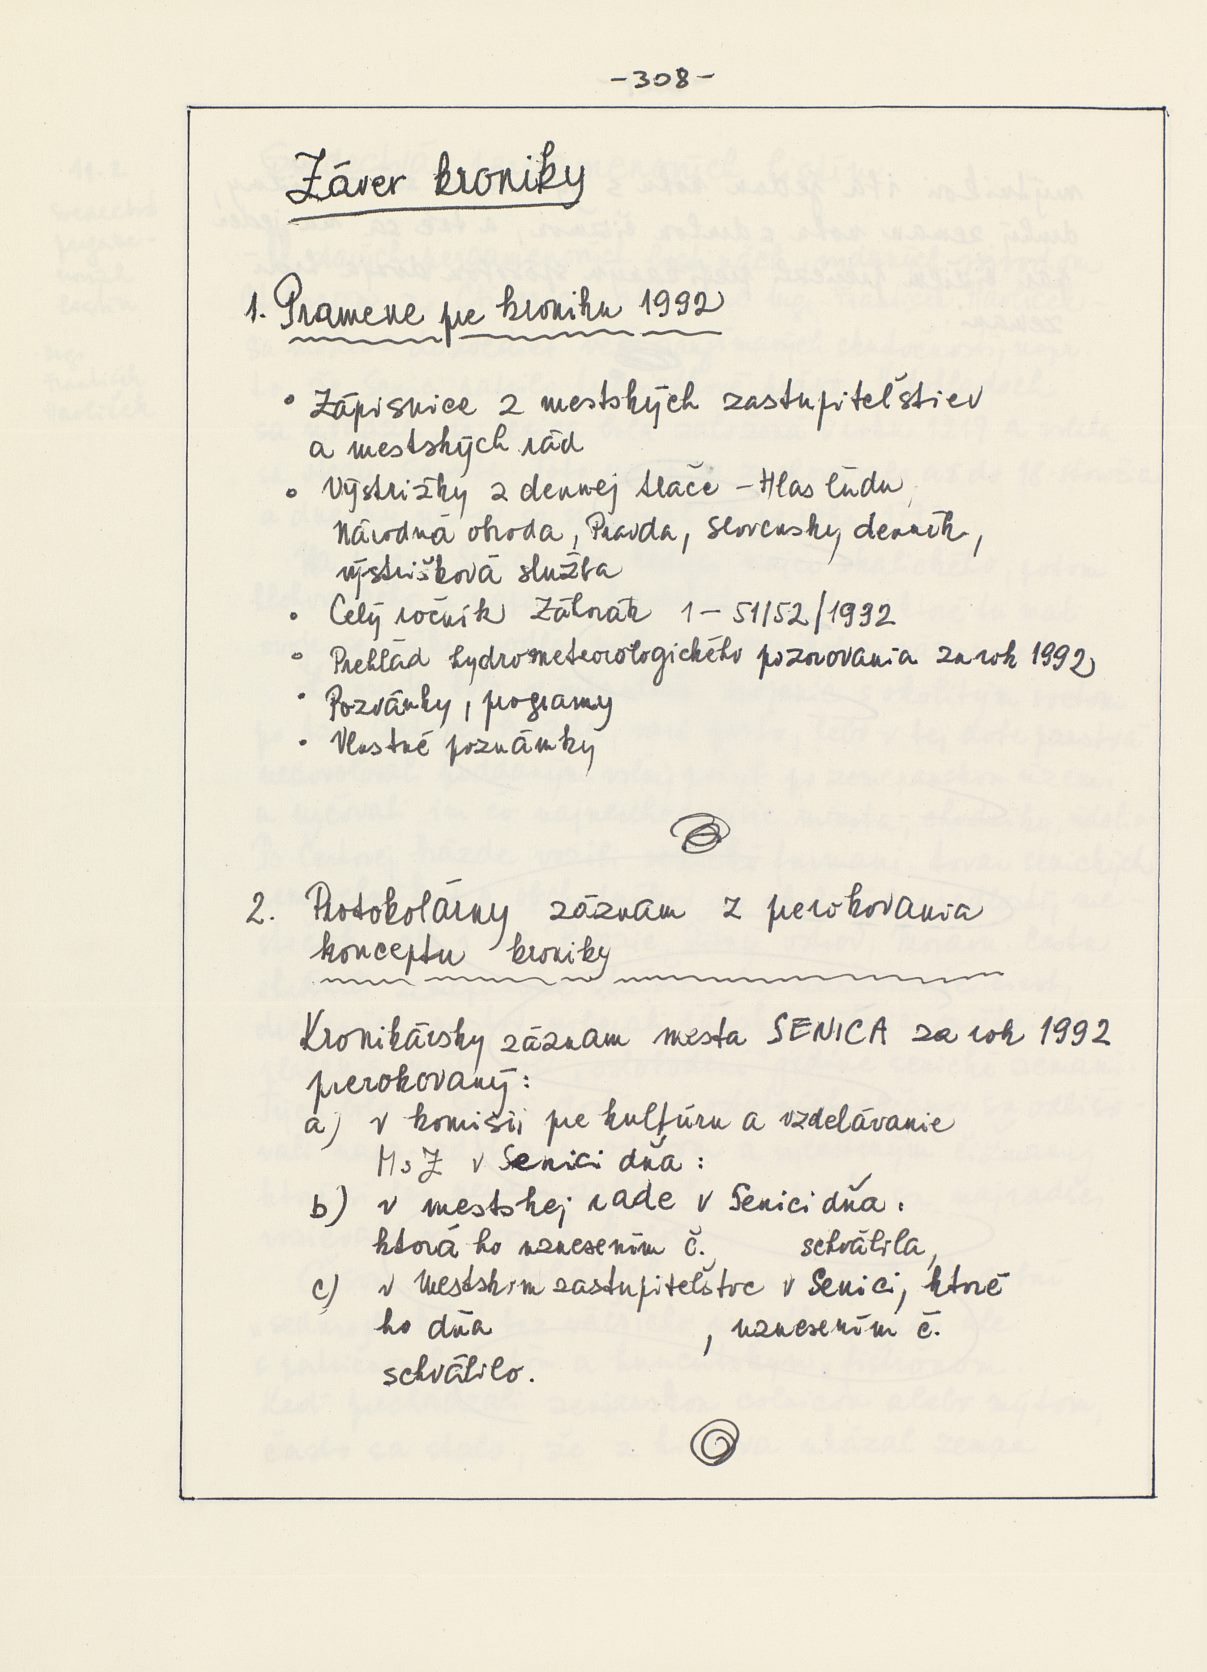 -308-
Záver kroniky
1. Pramene pre kroniku 1992
• Zápisnice z mestských zastupiteľstiev
a mestských rád
• Výstrižky z dennej tlače - Hlas ľudu,
Národná obroda, Pravda, Slovenský denník,
výstrišková služba
• Celý ročník Záhorák 1-51/52/1992
• Prehľad hydrometeorologického pozorovania za rok 1992
• Pozvánky, programy
• Vlastné poznámky
2. Protokolárny záznam z prerokovania
konceptu kroniky
Kronikársky záznam mesta SENICA za rok 1992
prerokovaný:
a) v komisii pre kultúru a vzdelávanie
MsZ v Senici dňa:
b) v mestskej rade v Senici dňa:
ktorá ho uznesením č. schválila,
c) v Mestskom zastupiteľstve v Senici, ktoré
ho dňa , uznesením č.
schválilo.